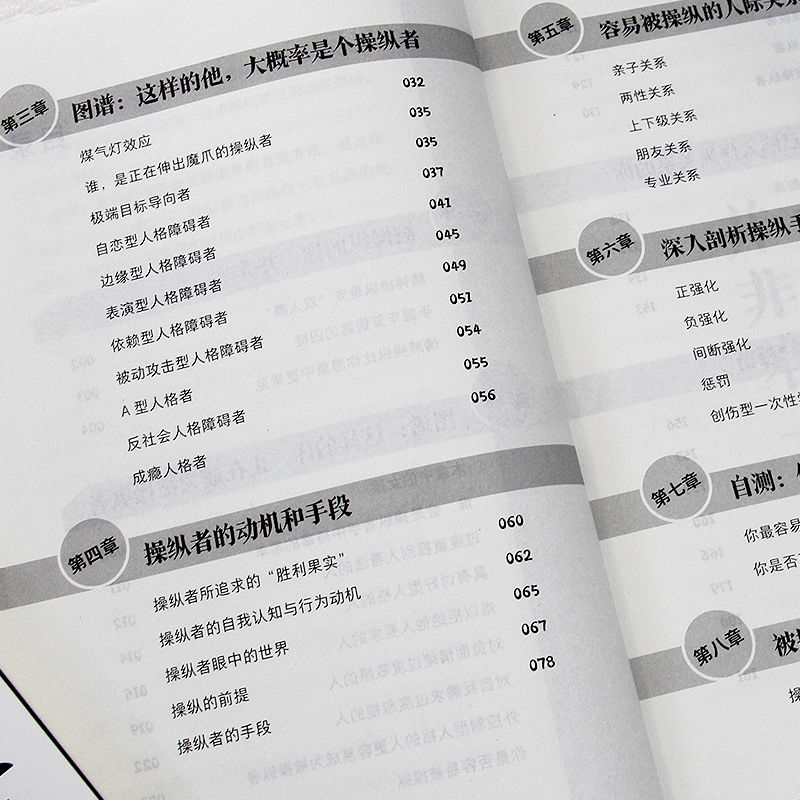 第三章 图谱：这样的他，大概率是个操纵者
煤气灯效应 032
谁，是正在伸出魔爪的操纵者 035
极端目标导向者 035
自恋型人格障碍者 037
边缘型人格障碍者 041
表演型人格障碍者 045
依赖型人格障碍者 049
被动攻击型人格障碍者 051
A 型人格者 054
反社会人格障碍者 055
成瘾人格者 056
第四章 操纵者的动机和手段
操纵者所追求的“胜利果实” 060
操纵者的自我认知与行为动机 062
操纵者眼中的世界 065
操纵的前提 067
操纵者的手段 078
第五章 容易被操纵的人际关系
亲子关系
两性关系
上下级关系
朋友关系
专业关系
第六章 深入剖析操纵手
正强化
负强化
间断强化
惩罚
创伤型一次性
第七章 自测：
你最容易
你是否
第八章 被